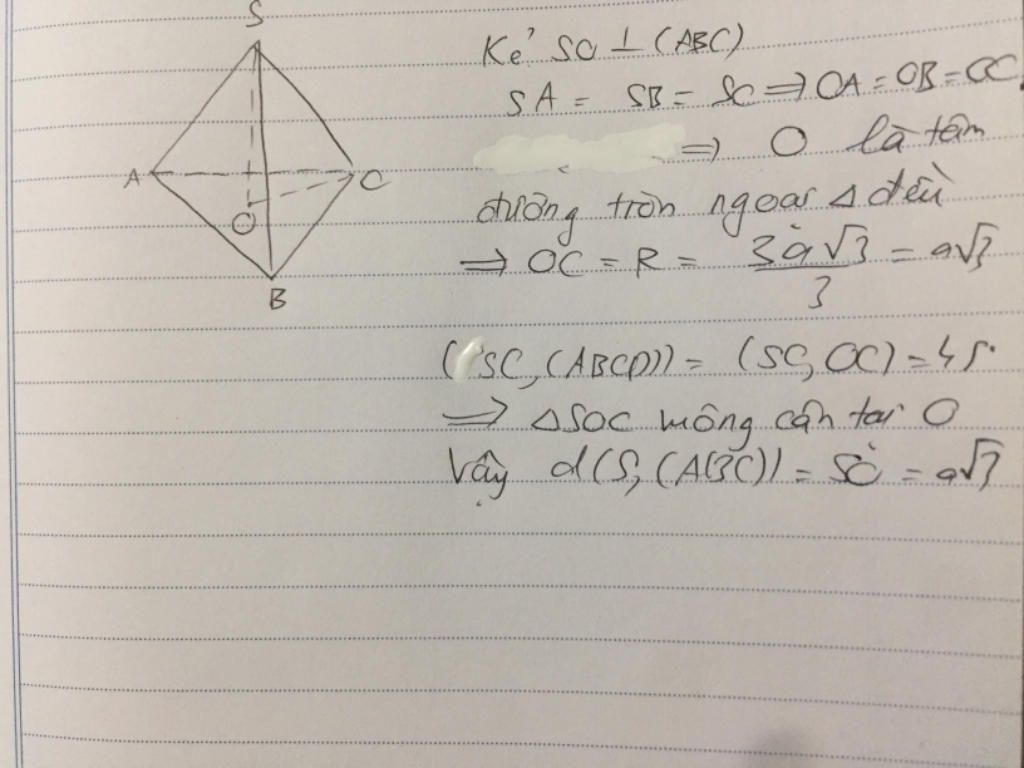 S
A
C
O
B
Kẻ SO ⊥ (ABC)
SA = SB = SC ⇒ OA = OB = OC
⇒ O là tâm
đường tròn ngoại Δ đều
⇒ OC = R = 3a√3/3 = a√3
(SC, (ABCD)) = (SC, OC) = 45°
⇒ ΔSOC vuông cân tại O
Vậy d(S, (ABC)) = SO = a√3